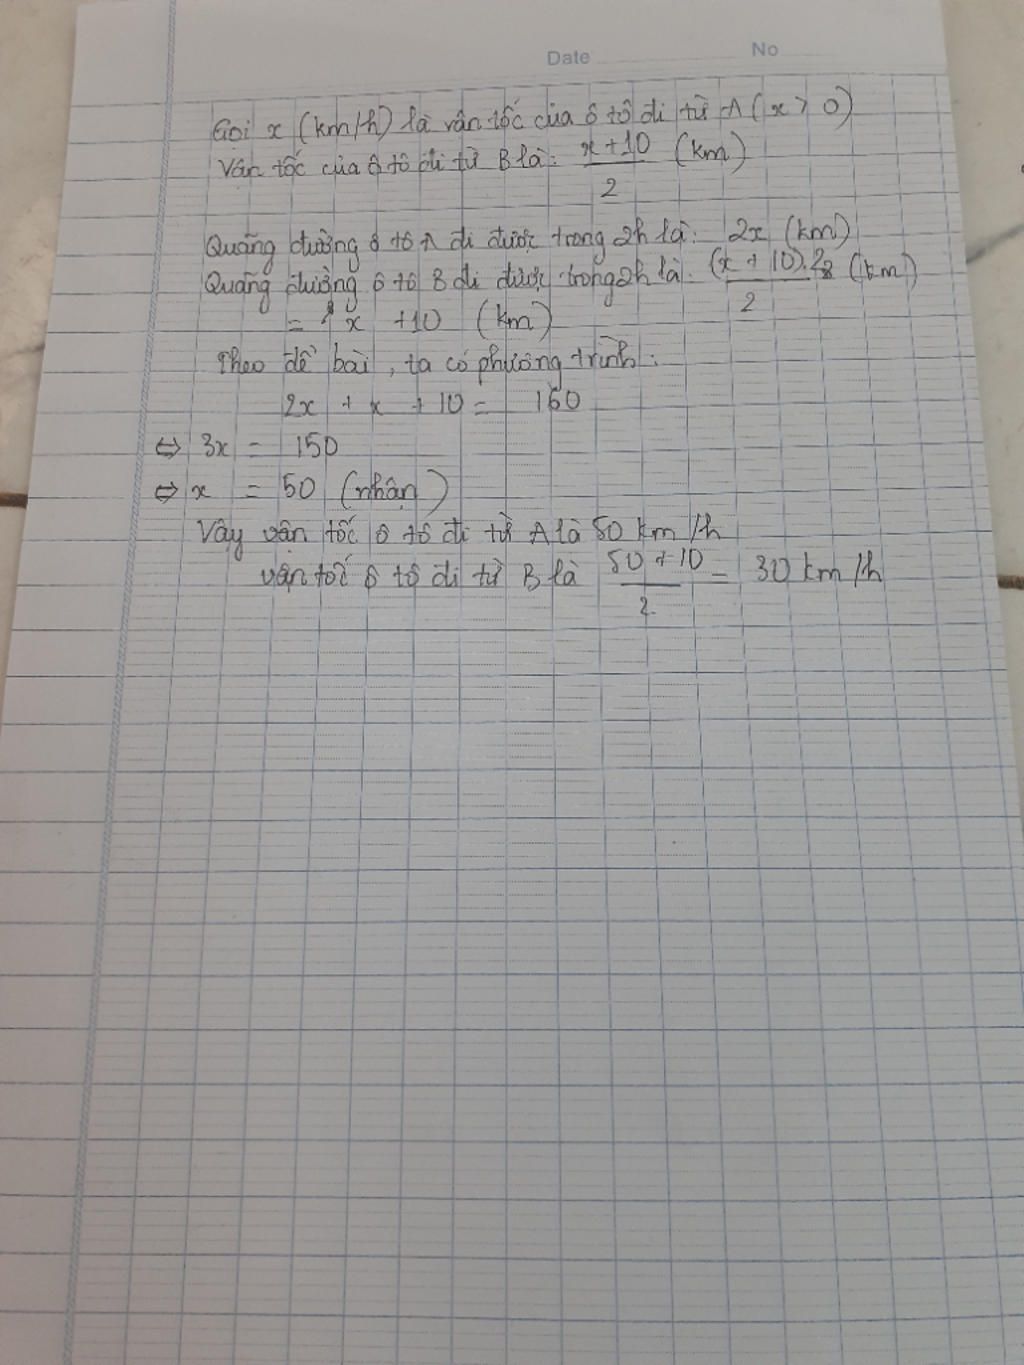 Date No
Gọi x (km/h) là vận tốc của ô tô đi từ A (x > 0)
Vận tốc của ô tô đi từ B là: (x+10)/2 (km)
Quãng đường ô tô A đi được trong 2h là: 2x (km)
Quãng đường ô tô B đi được trong 2h là: (x + 10).2/2 (km)
= x + 10 (km)
Theo đề bài, ta có phương trình:
2x + x + 10 = 160
⇔ 3x = 150
⇔ x = 50 (nhận)
Vậy vận tốc ô tô đi từ A là 50 km/h
vận tốc ô tô đi từ B là (50+10)/2 = 30 km/h